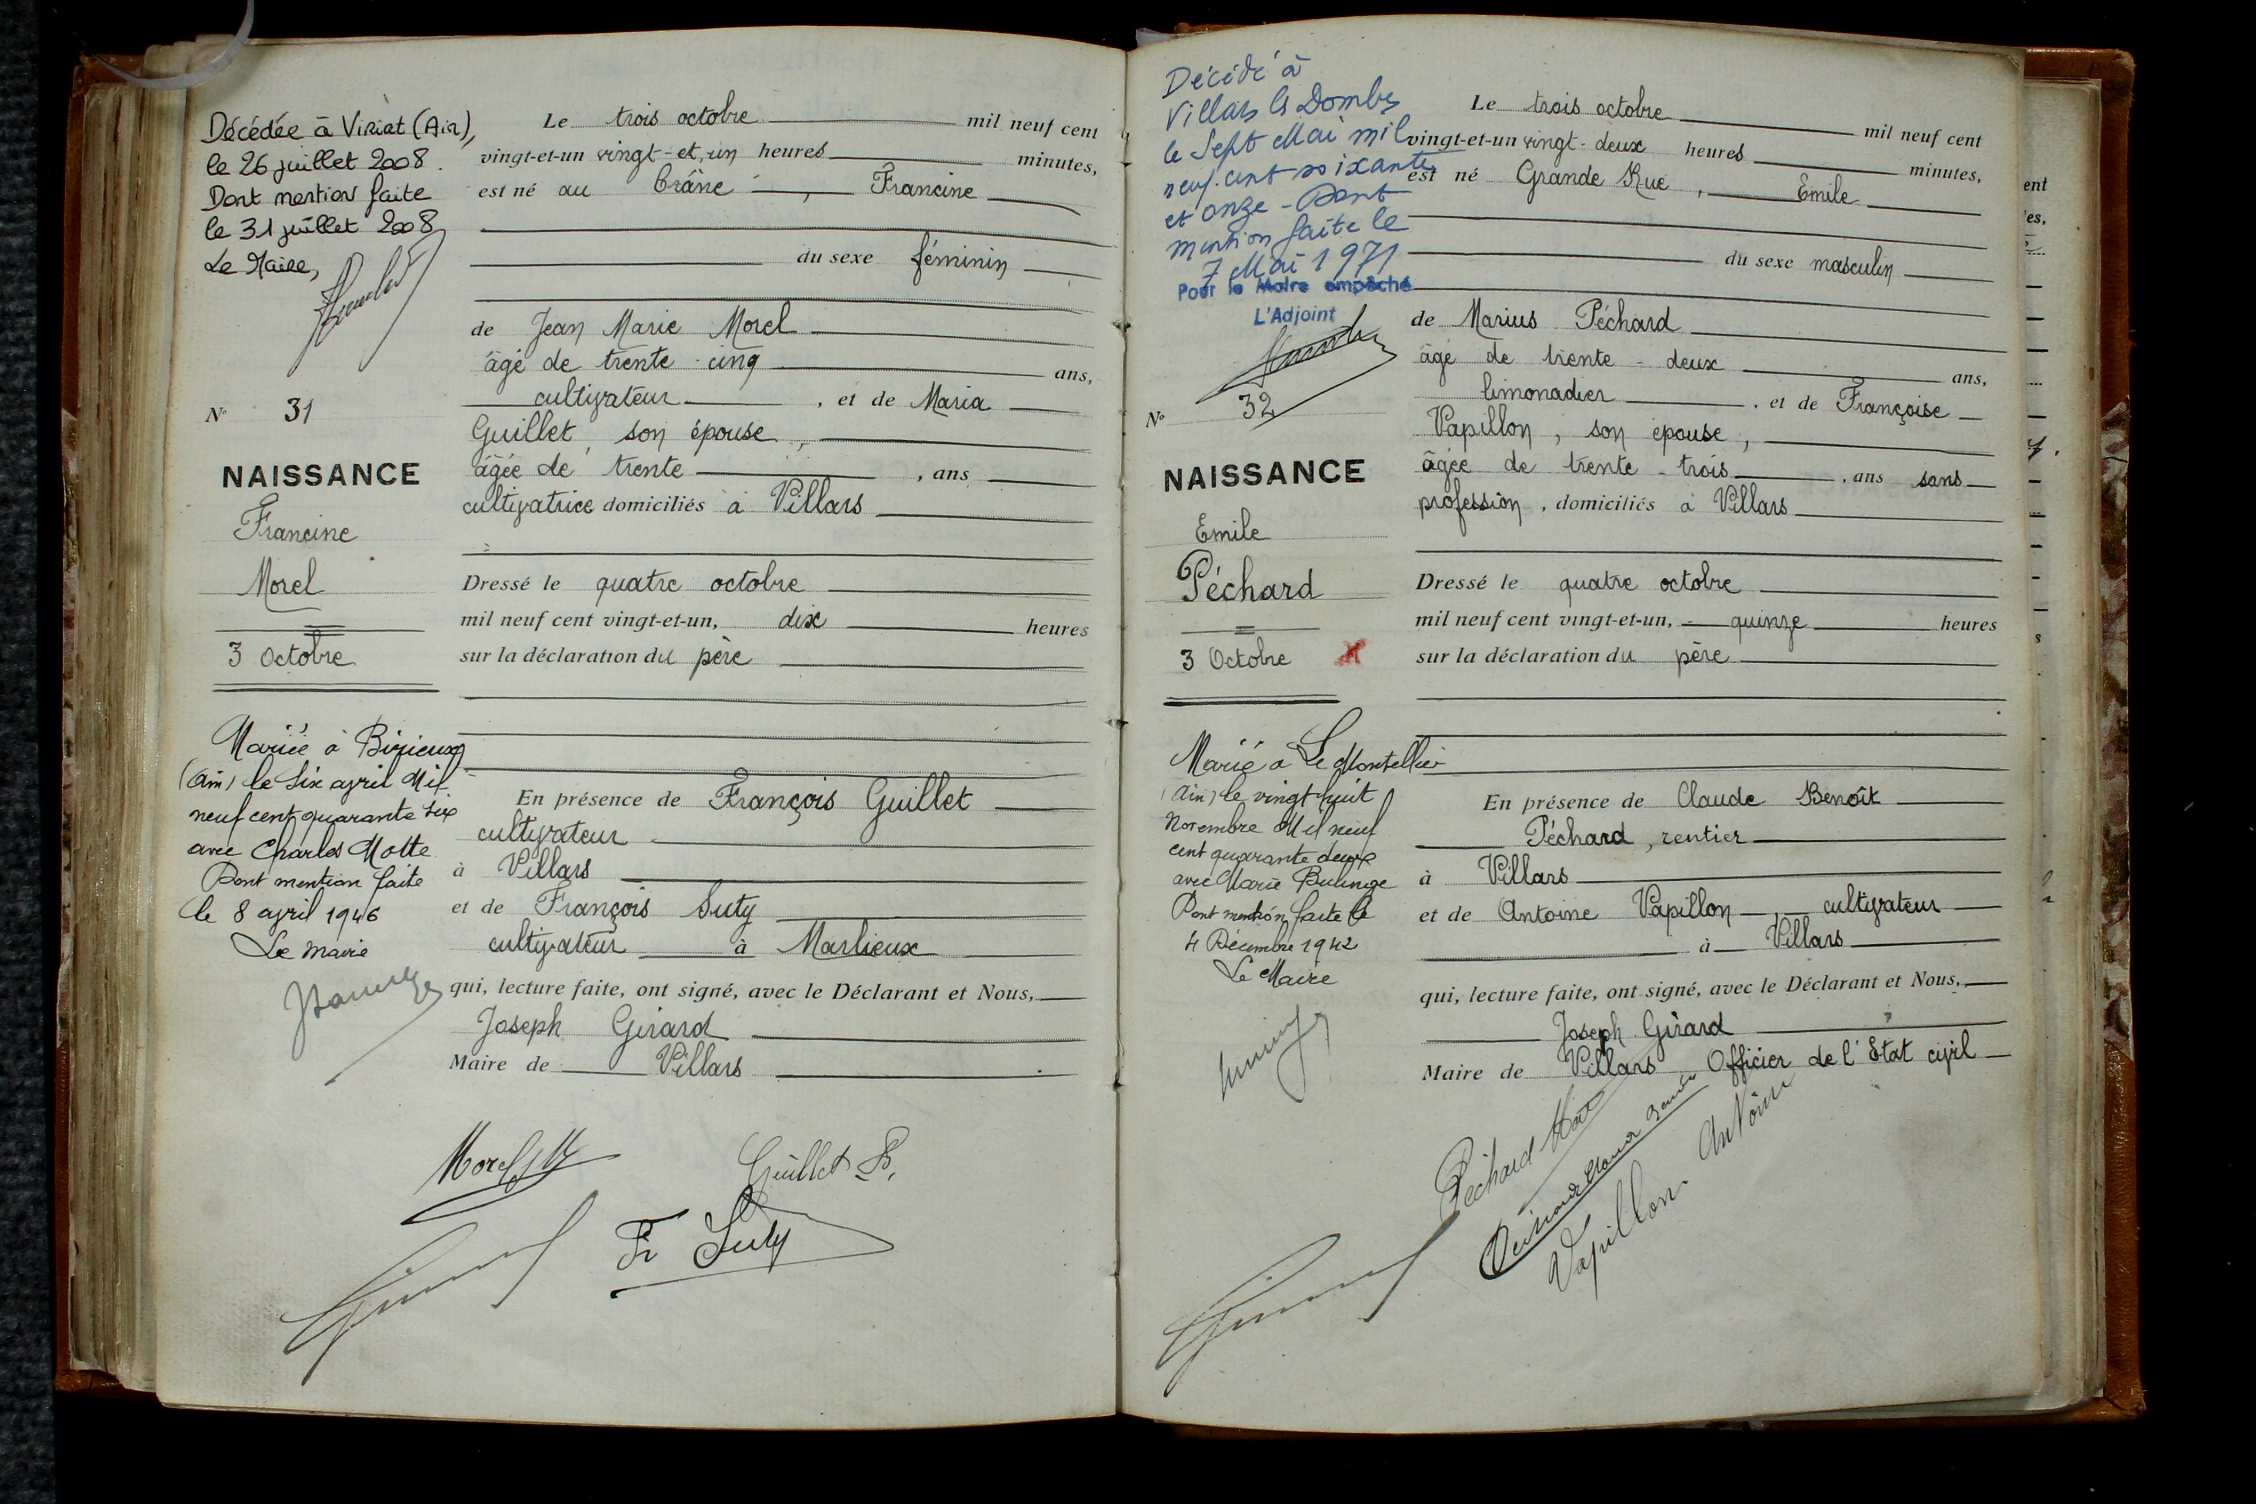 Décédée à Viriat (Ain),
le 26 juillet 2008.
Dont mention faite
le 31 juillet 2008
Le Maire,
N° 31
NAISSANCE
Francine
Morel
3 Octobre
Mariée à Birieux
(Ain) le Six avril Mil
neuf cent quarante six
avec Charles Motte
Dont mention faite
le 8 avril 1946
Le Maire
Le trois octobre mil neuf cent
vingt-et-un vingt-et-un heures minutes,
est né au Crâne, Francine
du sexe féminin
de Jean Marie Morel
âgé de trente-cinq ans,
cultivateur, et de Maria
Guillet, son épouse,
âgée de trente, ans
cultivatrice domiciliés à Villars
Dressé le quatre octobre
mil neuf cent vingt-et-un, dix heures
sur la déclaration du père
En présence de François Guillet
cultivateur
à Villars
et de François Suty
cultivateur à Marlieux
qui, lecture faite, ont signé, avec le Déclarant et Nous,
Joseph Girard
Maire de Villars
Morel JM
Guillet
Fr Suty
Décédé à
Villars les Dombes
le Sept Mai mil
neuf-cent soixante
et onze - Dont
mention faite le
7 Mai 1971
Pour le Maire empêché
L'Adjoint
N° 32
NAISSANCE
Emile
Péchard
3 Octobre
Marié à Le Montellier
(Ain) le vingt huit
Novembre Mil neuf
cent quarante deux
avec Marie Bulinge
Dont mention faite le
4 Décembre 1942
Le Maire
Le trois octobre mil neuf cent
vingt-et-un vingt-deux heures minutes,
est né Grande Rue, Emile
du sexe masculin
de Marius Péchard
âgé de trente-deux ans,
limonadier, et de Françoise
Papillon, son épouse,
âgée de trente-trois, ans sans
profession, domiciliés à Villars
Dressé le quatre octobre
mil neuf cent vingt-et-un, quinze heures
sur la déclaration du père
En présence de Claude Benoît
Péchard, rentier
à Villars
et de Antoine Papillon, cultivateur
à Villars
qui, lecture faite, ont signé, avec le Déclarant et Nous,
Joseph Girard
Maire de Villars Officier de l'Etat civil
Péchard
Papillon Antoine